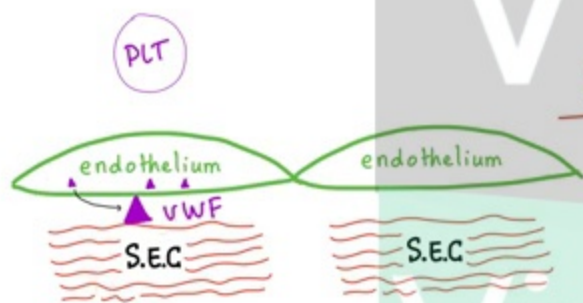 PLT
V
endothelium
endothelium
VWF
S.E.C
S.E.C